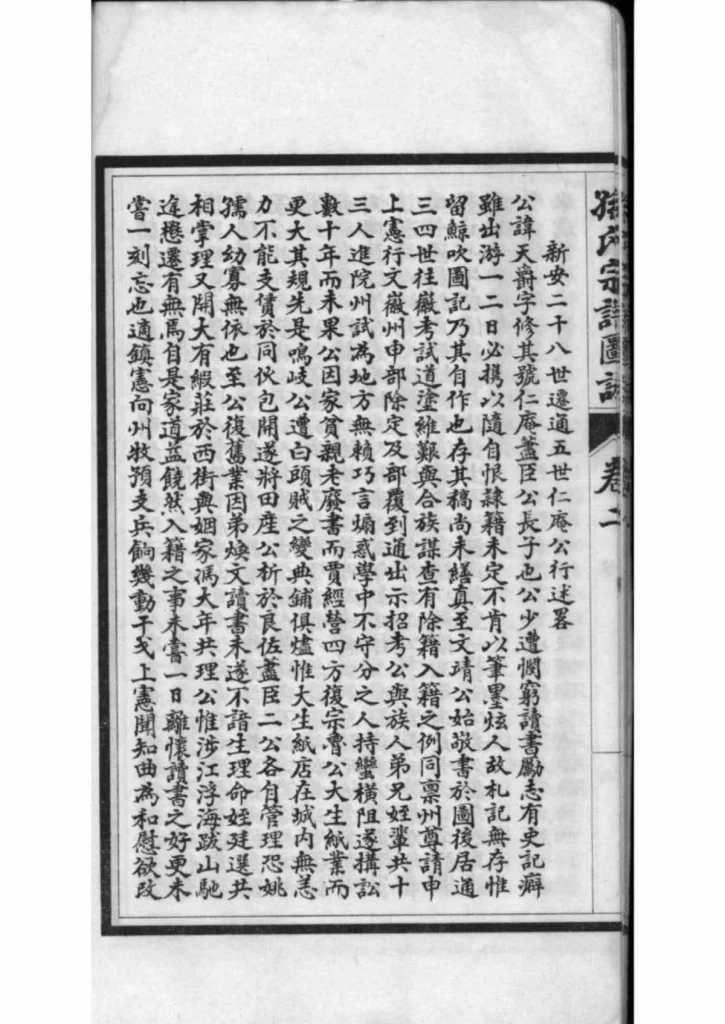 孫氏宗譜圖說 卷二
新安二十八世遷通五世仁庵公行述畧
公諱天爵字修其號仁庵藎臣公長子也公少遭憫窮讀書勵志有史記癖
雖出游一二日必攜以隨自恨隸籍未定不肯以筆墨炫人故札記無存惟
留鯨吹圖記乃其自作也存其稿尚未繕真至文靖公始敬書於圖後居通
三四世往徽考試道塗維艱與合族謀查有除籍入籍之例同稟州尊請申
上憲行文徽州申部除定及部覆到通出示招考公與族人弟兄姪輩共十
三人進院州試為地方無賴巧言煽惑學中不守分之人持蠻橫阻遂搆訟
數十年而未果公因家貧親老廢書而賈經營四方復宗魯公大生紙業而
更大其規先是鳴岐公遭白頭賊之變典鋪俱燼惟大生紙店在城內無恙
力不能支賃於同伙包開遂將田產公析於良佐藎臣二公各自管理恐姚
孺人幼寡無依也至公復舊業因弟煥文讀書未遂不諳生理命姪廷選共
相掌理又開大有緞莊於西街與姻家馮大年共理公惟涉江浮海跋山馳
逐懋遷有無焉自是家道益饒然入籍之事未嘗一日離懷讀書之好更未
嘗一刻忘也適鎮憲向州牧預支兵餉幾動干戈上憲聞知曲為和慰欲改